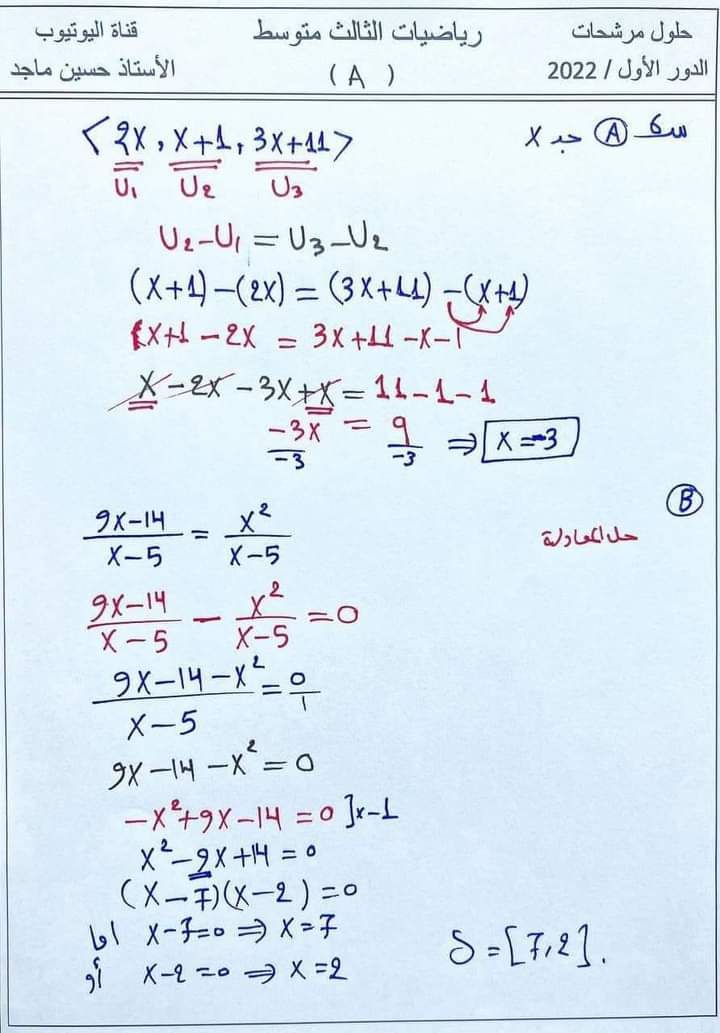 حلول مرشحات
الدور الأول / 2022
رياضيات الثالث متوسط
( A )
قناة اليوتيوب
الأستاذ حسين ماجد
س6 Ⓐ جد X
<2X, X+1, 3X+11>
U₁ U₂ U₃
U₂-U₁ = U₃-U₂
(X+1)-(2X) = (3X+11)-(X+1)
X+1-2X = 3X+11-X-1
X-2X-3X+X = 11-1-1
-3X/-3 = 9/-3 ⇒ X=-3
Ⓑ
حل المعادلة
9X-14/X-5 = X²/X-5
9X-14/X-5 - X²/X-5 = 0
9X-14-X²/X-5 = 0/1
9X-14-X² = 0
-X²+9X-14 = 0 ]x-1
X²-9X+14 = 0
(X-7)(X-2) = 0
اما X-7=0 ⇒ X=7
أو X-2=0 ⇒ X=2
S = [7,2].